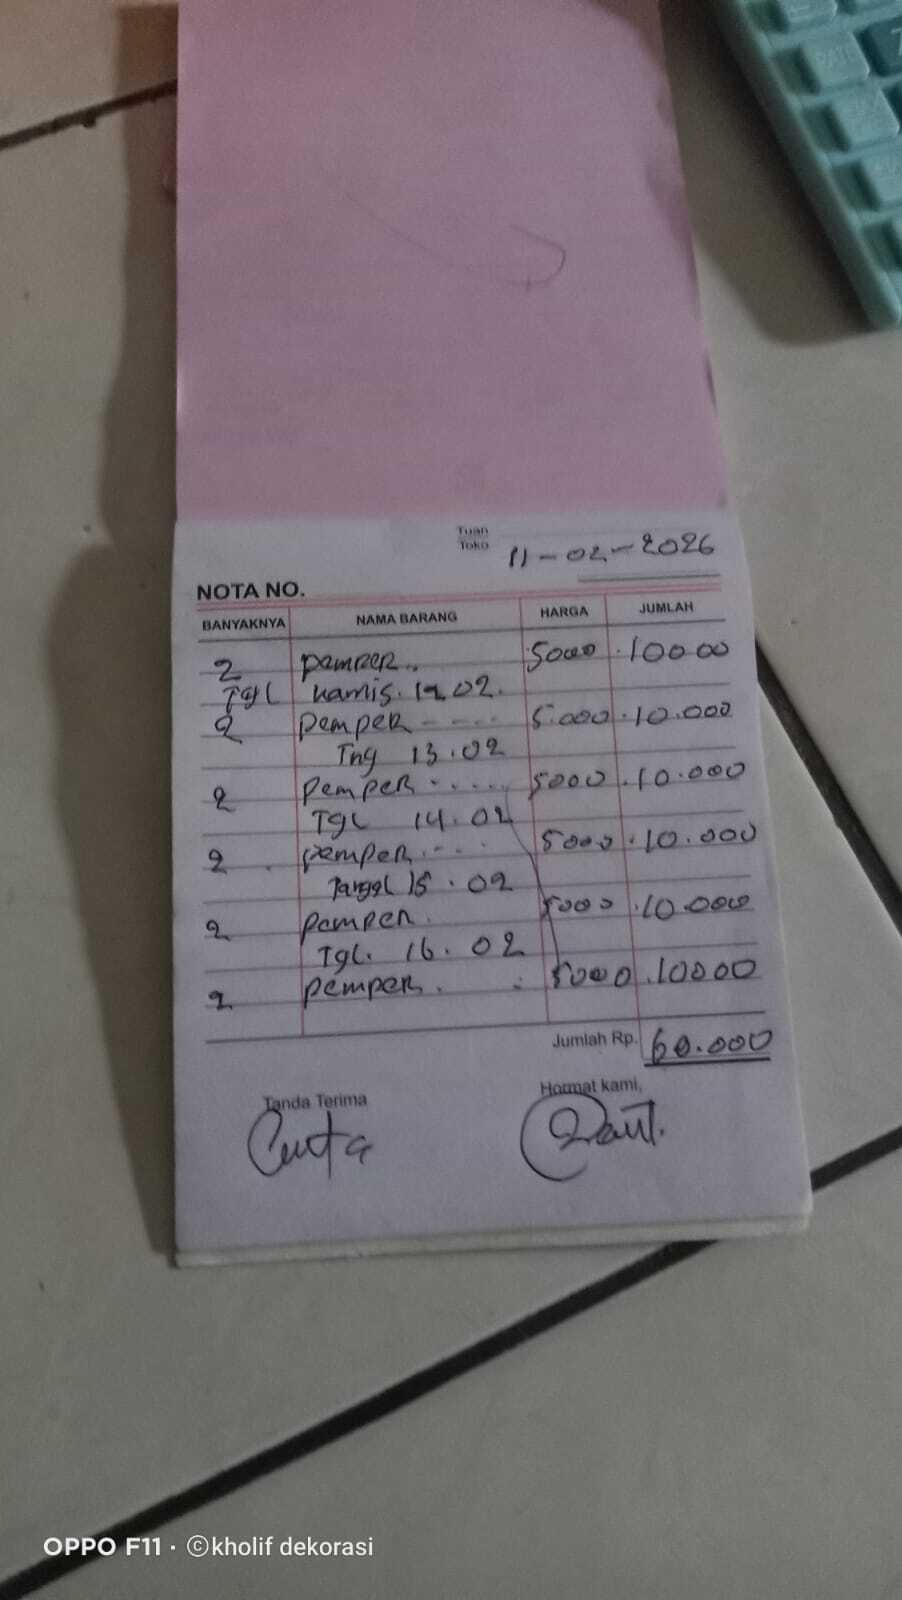 Tuan
Toko 11-02-2026
NOTA NO.
BANYAKNYA NAMA BARANG HARGA JUMLAH
2 pamper.. 5000 10000
Tgl kamis. 12.02.
2 pemper - - - - 5.000 10.000
Tng 13.02
2 pemper - . . . . 5000 10.000
TGL 14.02
2 pemper . - - 5000 10.000
Tanggl 15.02
2 pamper. 5000 10.000
TGL. 16.02
2 pemper. 5000 10000
Jumlah Rp. 60.000
Tanda Terima Hormat kami,
OPPO F11 · ©kholif dekorasi